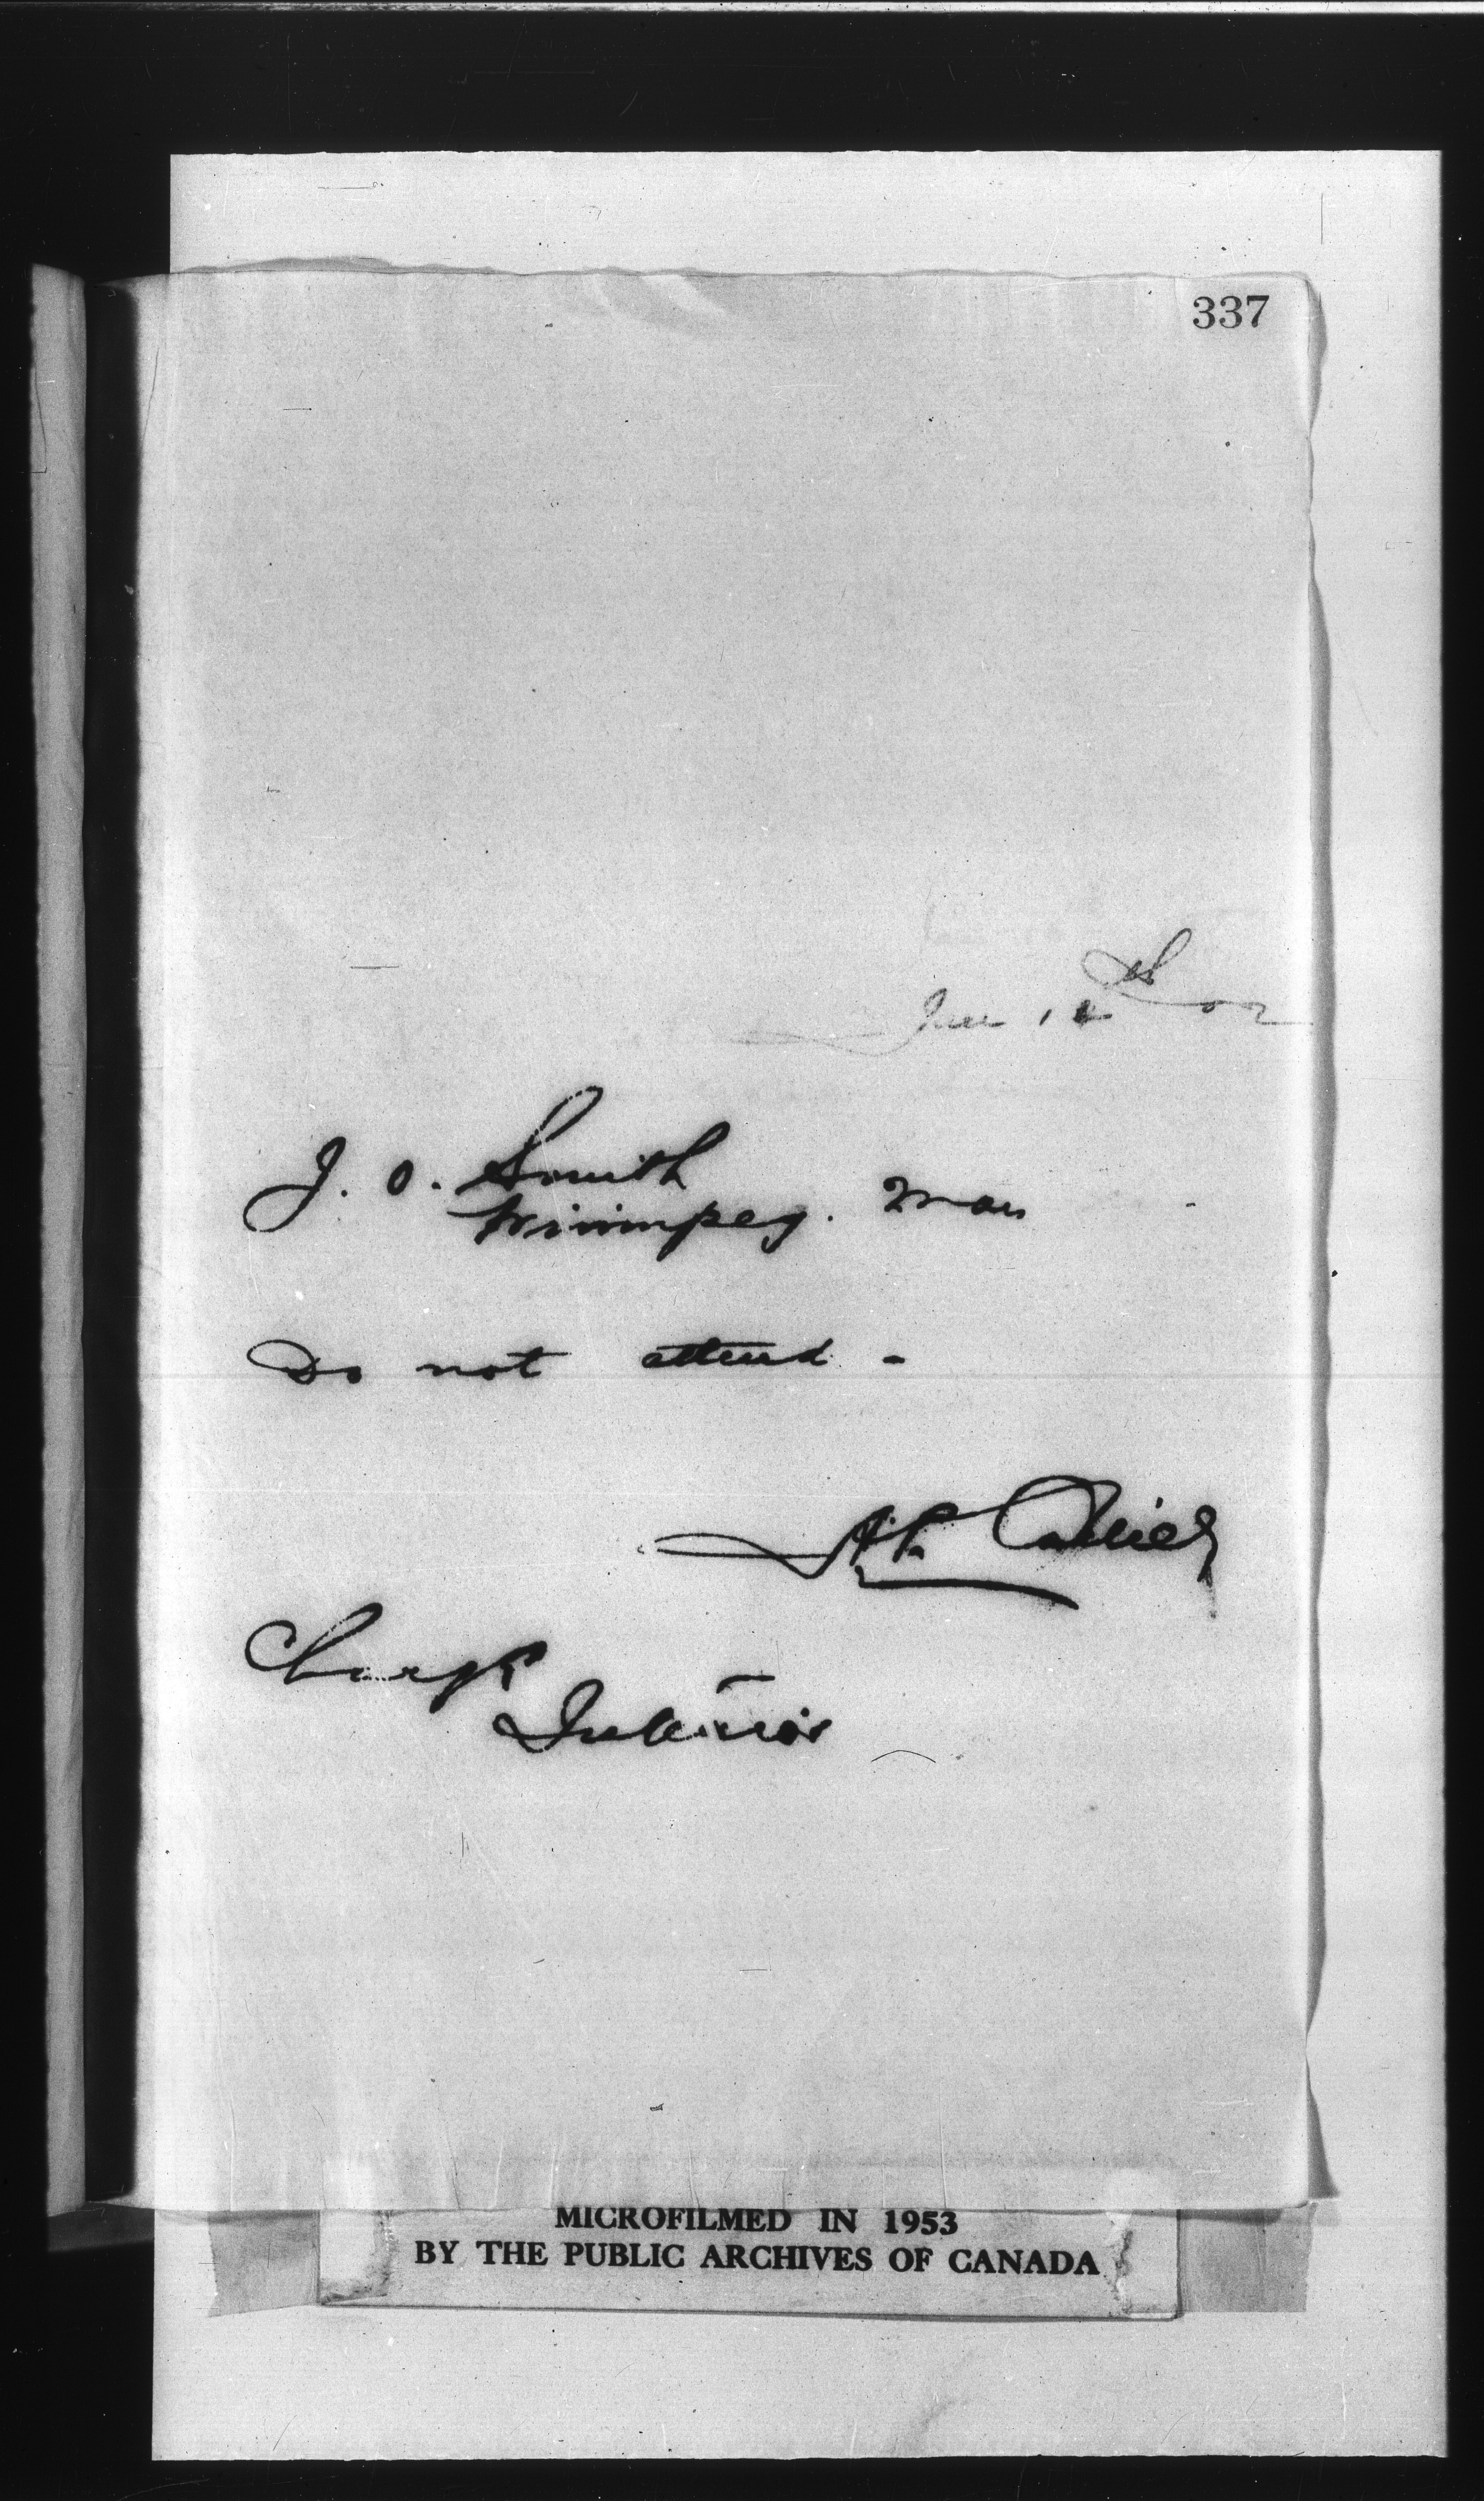 337
02
J. O. Smith
Winnipeg. Man
Do not attend -
A. P. Collier
Charge
Interior
MICROFILMED IN 1953
BY THE PUBLIC ARCHIVES OF CANADA